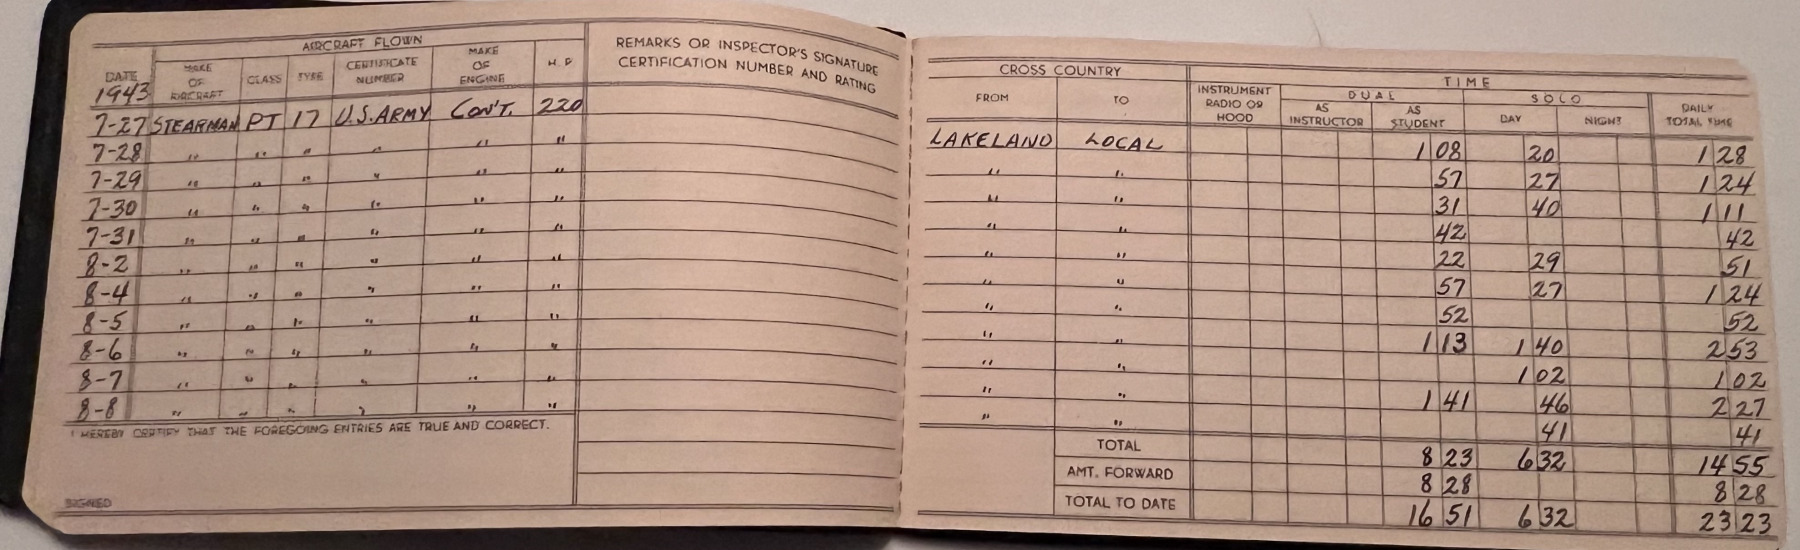 AIRCRAFT FLOWN
DATE MAKE OF AIRCRAFT CLASS TYPE CERTIFICATE NUMBER MAKE OF ENGINE H. P.
1943
7-27 STEARMAN PT 17 U.S. ARMY CON'T. 220
7-28 " " " " " "
7-29 " " " " " "
7-30 " " " " " "
7-31 " " " " " "
8-2 " " " " " "
8-4 " " " " " "
8-5 " " " " " "
8-6 " " " " " "
8-7 " " " " " "
8-8 " " " " " "
I HEREBY CERTIFY THAT THE FOREGOING ENTRIES ARE TRUE AND CORRECT.
SIGNED
REMARKS OR INSPECTOR'S SIGNATURE
CERTIFICATION NUMBER AND RATING
CROSS COUNTRY
FROM TO
TIME
INSTRUMENT RADIO OR HOOD
DUAL
AS INSTRUCTOR AS STUDENT
SOLO
DAY NIGHT
DAILY TOTAL TIME
LAKELAND LOCAL 1 08 20 1 28
" " 57 27 1 24
" " 31 40 1 11
" " 42 42
" " 22 29 51
" " 57 27 1 24
" " 52 52
" " 1 13 1 40 2 53
" " 1 02 1 02
" " 1 41 46 2 27
" " 41 41
TOTAL 8 23 6 32 14 55
AMT. FORWARD 8 28 8 28
TOTAL TO DATE 16 51 6 32 23 23